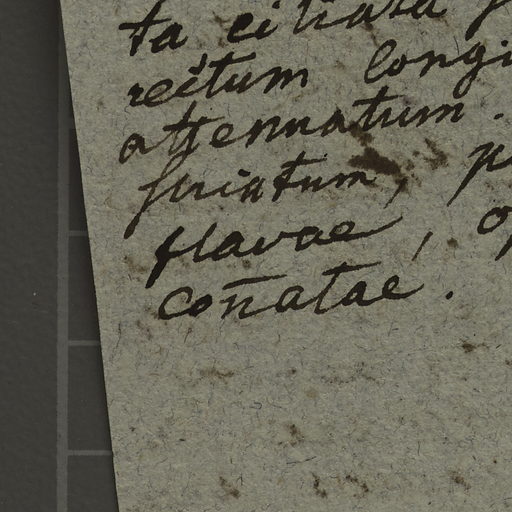 ta ciliata
rectum longi
attennatum.
striatum, p
flavae, o
con̄atae.